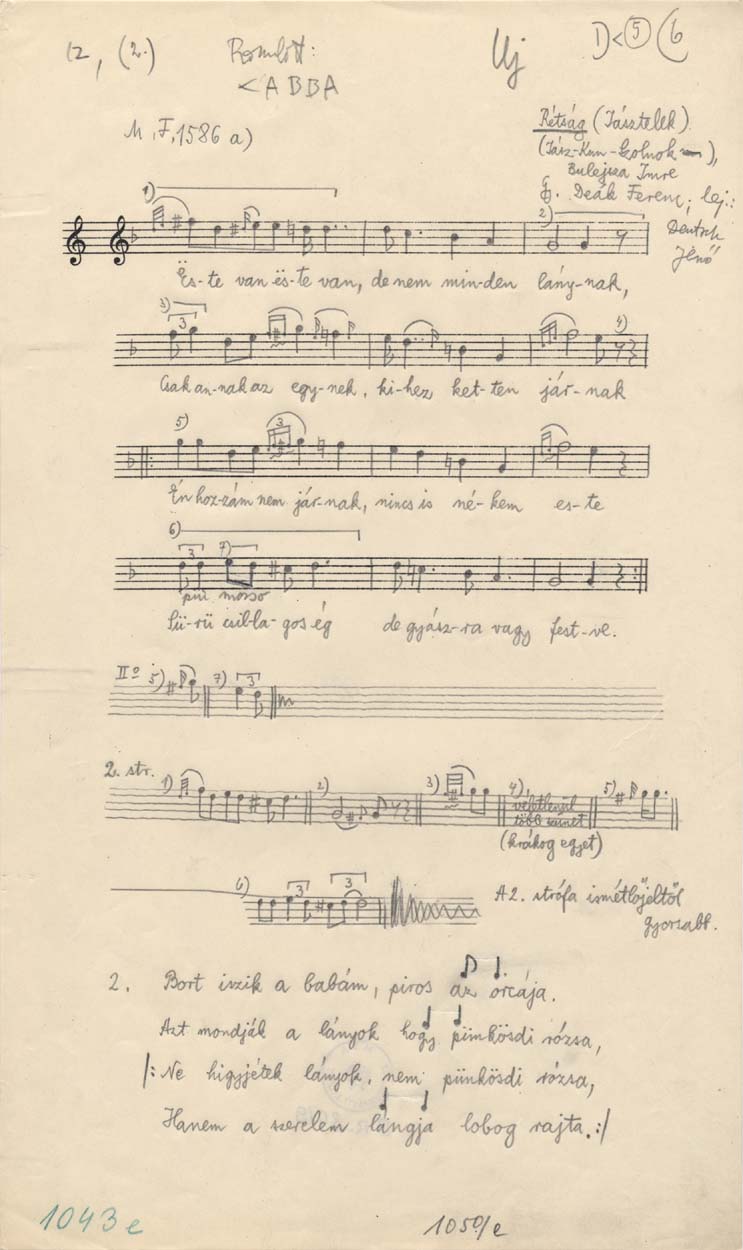 12, (2.) Romlott: Uj D<⑤ (6
<ABBA
M. F. 1586 a) Rétság (Jásztelek)
(Jász-Kun-Szolnok),
Bulejsza Imre
Deák Ferenc; lej.:
Deutsch
Jenő
1) 2)
Ës-te van ës-te van, de nem min-den lány-nak,
3) 3 4)
Csak an-nak az egy-nek, ki-hez ket-ten jár-nak
5) 3
Én hoz-zám nem jár-nak, nincs is né-kem es-te
6)
3 7)
più mosso
Sü-rü csil-la-gos ég de gyász-ra vagy fest-ve.
IIº 5) 7) 3
2. str. 1) 2) 3) 4) véletlenül 5)
több szünet
(krákog egyet)
6) 3 3 A 2. strófa ismétlőjeltől
gyorsabb.
2. Bort iszik a babám, piros az orcája.
Azt mondják a lányok hogy pünkösdi rózsa,
/: Ne higyjétek lányok, nem pünkösdi rózsa,
Hanem a szerelem lángja lobog rajta. :/
1043 e 1050/e